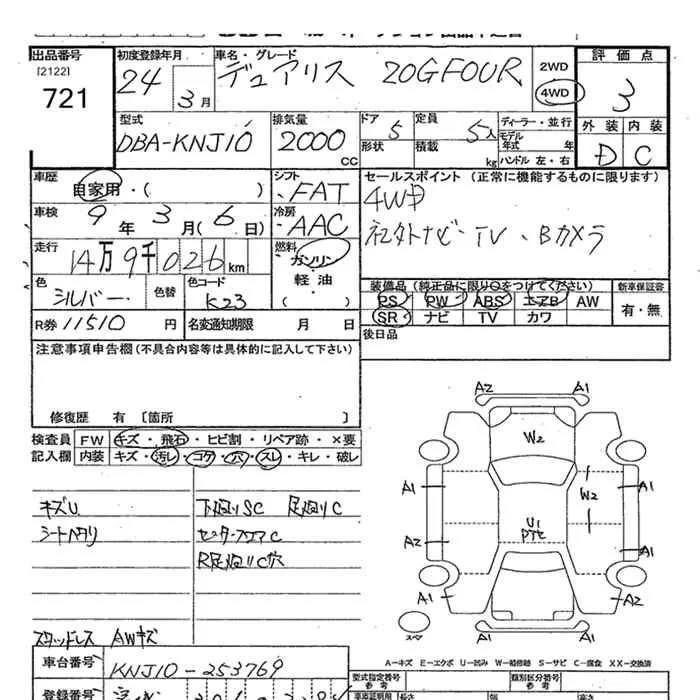 出品番号
[2122]
721
初度登録年月
24 3月
車名・グレード
デュアリス 20GFOUR
2WD
4WD
評価点
3
外装 内装
D C
型式
DBA-KNJ10
排気量
2000 CC
ドア 5
形状
定員 5人
積載 kg
ディーラー・並行
モデル年式 年
ハンドル 左・右
車歴
自家用・( )
シフト
FAT
セールスポイント (正常に機能するものに限ります)
4WD
社外ナビ・TV、Bカメラ
車検
9年 3月(6日)
冷房
AAC
走行
14万9千026km
燃料
ガソリン
軽油
( )
色
シルバー
色替
色コード
K23
装備品 (純正品に限り○をつけてください)
新車保証書
PS PW ABS エアB AW
有・無
SR ナビ TV カワ
R券 11510円
名変通知期限 月 日
後日品
注意事項申告欄 (不具合内容等は具体的に記入して下さい)
修復歴 有 〔箇所 〕
検査員
記入欄
FW キズ・飛石・ヒビ割・リペア跡・×要
内装 キズ・汚レ・コゲ・穴・スレ・キレ・破レ
キズU
シートヘタリ
下廻りSC 足廻りC
センターフロアC
R足廻りC穴
A2 A1
W2
A1 W2 A1
U1
A2 A1
A1 A2
スマ
スタッドレス AWキズ
車台番号
KNJ10-253769
登録番号
A-キズ E-エクボ U-凹み W-補修跡 S-サビ C-腐食 XX-交換済
型式指定番号
参考
類別区分番号
参考
車庫証明用
参考
長さ
幅
高さ